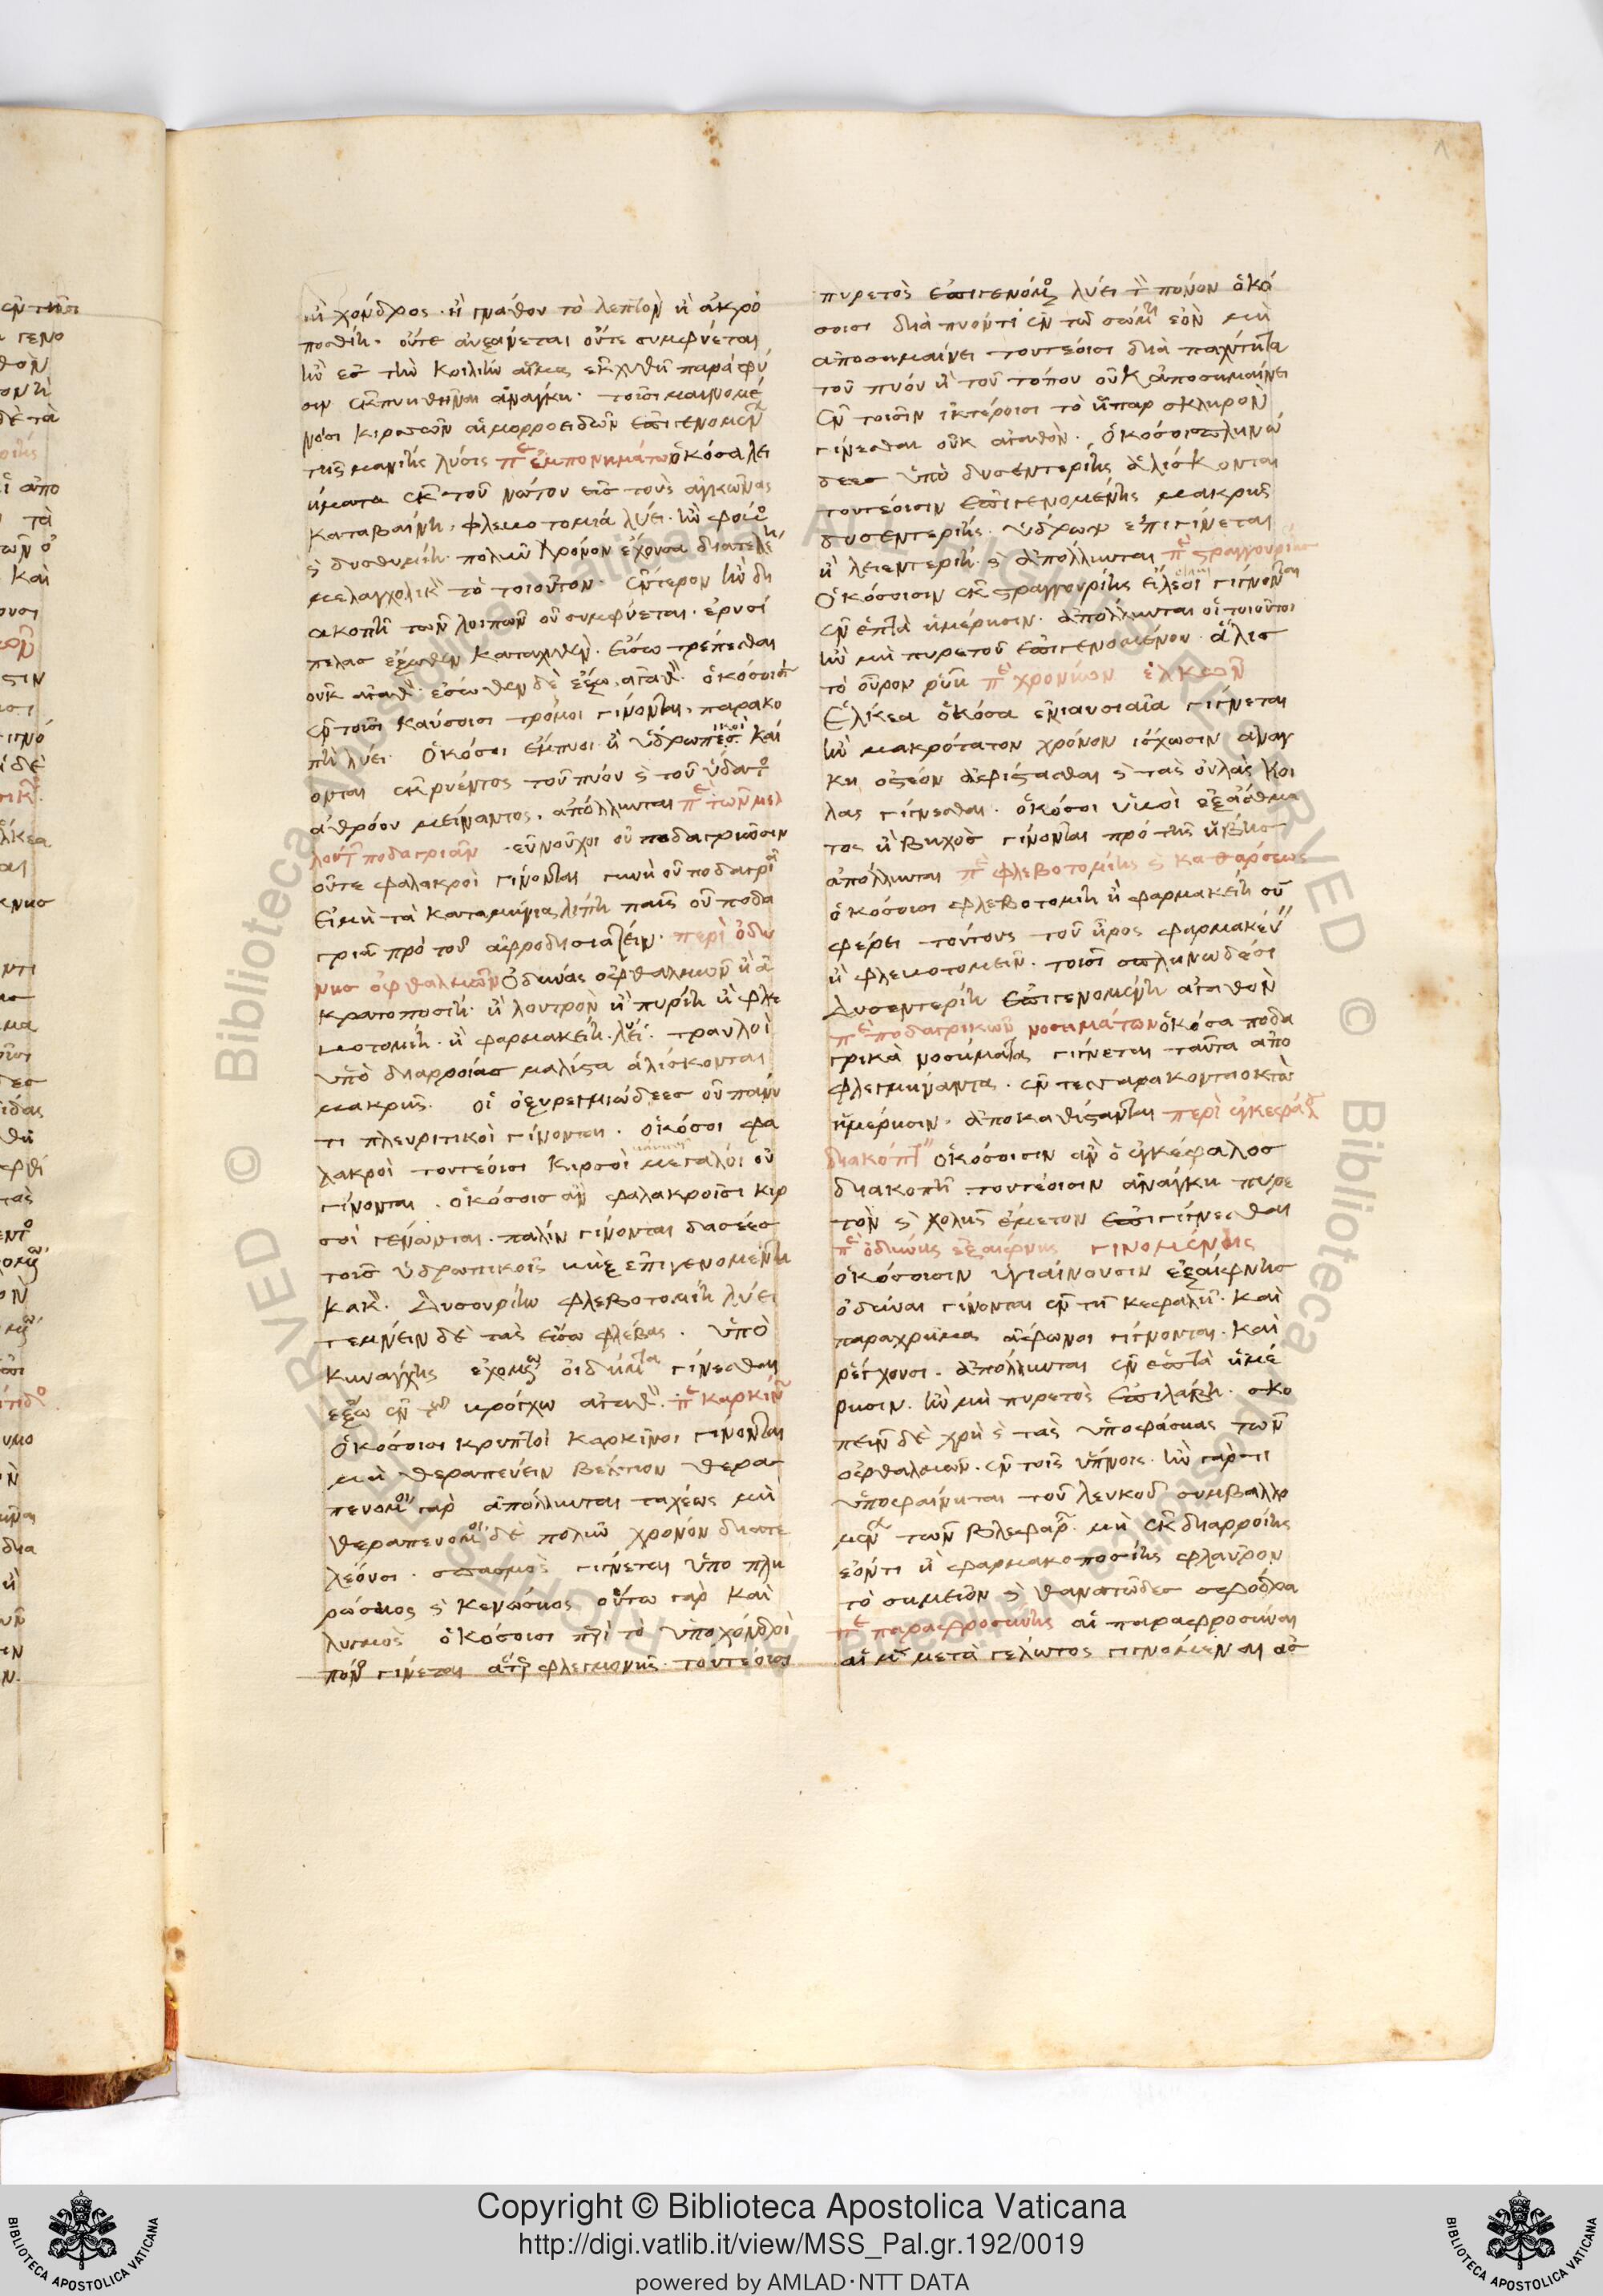 ἢ χόνδρος. ἢ γνάθου τὸ λεπτὸν ἢ ἀκρο
ποσθίη. οὔτε αὐξάνεται οὔτε συμφύεται
ἢν ἐς τὴν κοιλίην αἷμα ἐκχυθῆ παρὰ φύ
σιν ἐκπυηθῆναι ἀνάγκη. τοῖσι μαινομέ
νοισι κιρσῶν αἱμορροειδῶν ἐπιγενομεν
τῆς μανίης λύσις πε ἐμπονημάτων ὁκόσα ῥει
ήματα ἐκ τοῦ νώτου εἰς τοὺς ἀγκῶνας
καταβαίνη, φλεμοτομία λύει. ἢν φοβο
ς δυσθυμίη πολὺν χρόνον ἔχουσα διατελέη
μελαγχολικ τὸ τοιοῦτον. ἔντερον ἢν δι
ακοπῆ τῶν λοιπῶν οὐ συμφύεται. ἐρυσί
πελας ἔξωθεν καταχυθὲν. εἴσω τρέπεσθαι
οὐκ ἀγαθ. ἔσωθεν δὲ ἔξω ἀγαθ. ὁκόσοισιν
ἐν τοῖσι καύσοισι τρόμοι γίνονται, παρακο
πὴ λύει. ὁκόσοι ἔμπυοι ἢ ὑδρωπικοὶ καί
ονται ἐκρυέντος τοῦ πύου ς τοῦ ὕδατο
ἀθρόου μείναντος, ἀπόλλυνται πε τῶν μελ
λοντ ποδαγριᾶν. εὐνοῦχοι οὐ ποδαγριῶσιν
οὔτε φαλακροὶ γίνονται γυνὴ οὐ ποδαγρι
εἰ μὴ τὰ καταμήνια λίπη παῖς οὐ ποδα
γριᾶ πρὸ τοῦ ἀφροδισιάζειν. περὶ ὀδύ
νης ὀφθαλμῶν Ὀδύνας ὀφθαλμῶν ἢ ἀ
κρατοποσίη. ἢ λουτρὸν ἢ πυρίη ἢ φλε
μοτομίη. ἢ φαρμακείη. λύει. τραυλοὶ
ὑπὸ διαρροίας μάλιστα ἁλίσκονται
μακρῆς. οἱ ὀξυρεγμιώδεες οὐ πάνυ
τι πλευριτικοὶ γίνονται. ὁκόσοι φα
λακροὶ τουτέοισι κιρσοὶ μεγάλοι οὐ
γίνονται. ὁκόσοις ἂν φαλακροῖσι κιρ
σοὶ γένωνται. πάλιν γίνονται δασέες
τοῖς ὑδρωπικοῖς βὴξ ἐπιγενομένη
κακ. Δυσουρίην φλεβοτομίη λύει
τέμνειν δὲ τὰς εἴσω φλέβας. ὑπὸ
κυνάγχης ἐχομεν οἴδημα γίνεσθαι
ἔξω ἐν τῶ βρόγχω ἀγαθ. πε καρκίν
Ὁκόσοισι κρυπτοὶ καρκῖνοι γίνονται
μὴ θεραπεύειν βέλτιον θερα
πευομοι γὰρ ἀπόλλυνται ταχέως μὴ
θεραπευομοι δὲ πολὺν χρόνον διατε
λέουσι. σπασμὸς γίγνεται ὑπο πλη
ρώσιος ς κενώσιος οὕτω γὰρ καὶ
λυγμὸς ὁκόσοισι περὶ τὸ ὑποχόνδρι
πόνο γίνεται ἄτερ φλεγμονῆς. τουτέοισι
πυρετὸς ἐπιγενόμο λύει τ πόνον ὁκό
σοισι διάπυόν τι ἐν τῶ σώμτι ἐὸν μὴ
ἀποσημαίνει τουτέοισι διὰ παχύτητα
τοῦ πύου ἢ τοῦ τόπου οὐκ ἀποσημαίνει
ἐν τοῖσιν ἰκτέροισι τὸ ἧπαρ σκληρὸν
γίνεσθαι οὐκ ἀγαθὸν. ὁκόσοι σπληνώ
δεες ὑπὸ δυσεντερίης ἁλίσκονται
τουτέοισιν ἐπιγενομένης μακρῆς
δυσεντερίης. ὕδρωψ ἐπιγίνεται
ἢ λειεντερίη. ς ἀπόλλυνται πε στραγγουρίης
Ὁκόσοισιν ἐκ στραγγουρίης εἰλεοὶ γίγνονται
ἐν ἑπτὰ ἡμέρησιν. ἀπόλλυνται οἱ τοιοῦτοι
ἢν μὴ πυρετοῦ ἐπιγενομένου. ἅλις
τὸ οὖρον ῥυῆ πε χρονίων ἑλκῶν
Ἕλκεα ὁκόσα ἐνιαύσιαῖα γίγνεται
ἢν μακρότατον χρόνον ἴσχωσιν ἀνάγ
κη ὀστέον ἀφίστασθαι ς τὰς οὐλὰς κοι
λας γίγνεσθαι. ὁκόσοι ὑβοὶ ἐξ ἄσθμα
τος ἢ βηχὸς γίνονται πρὸ τῆς ἥβης
ἀπόλλυνται πε φλεβοτομίης ς καθάρσεως
ὁκόσοισι φλεβοτομίη ἢ φαρμακείη συ
φέρει τούτους τοῦ ἦρος φαρμακεύ
ἢ φλεμοτομεῖν. τοῖσι σπληνώδεσι
Δυσεντερίη ἐπιγενομένη ἀγαθὸν
πε ποδαγρικῶν νοσημάτων ὁκόσα ποδα
γρικὰ νοσήματα γίγνεται ταῦτα ἀπο
φλεγμήναντα. ἐν τεσσαράκοντα ὀκτὼ
ἡμέρησιν. ἀποκαθίστανται περὶ ἐγκεφάλ
διακοπτ ὁκόσοισιν ἂν ὁ ἐγκέφαλος
διακοπῆ. τουτέοισιν ἀνάγκη πυρε
τὸν ς χολῆς ἔμετον ἐπιγίγνεσθαι
πε ὀδύνης ἐξαίφνης γινομένοις
ὁκόσοισιν ὑγιαίνουσιν ἐξαίφνης
ὀδύναι γίνονται ἐν τῆ κεφαλῆ. καὶ
παραχρῆμα ἄφωνοι γίγνονται. καὶ
ῥέγχουσι. ἀπόλλυνται ἐν ἑπτὰ ἡμέ
ρησιν. ἢν μὴ πυρετὸς ἐπιλάβη. σκο
πεῖν δὲ χρὴ ς τὰς ὑποφάσιας τῶν
ὀφθαλμῶν. ἐν τοῖς ὕπνοις. ἢν γάρ τι
ὑποφαίνηται τοῦ λευκοῦ συμβαλλο
μεν τῶν βλεφάρ. μὴ ἐκ διαρροίης
ἐόντι ἢ φαρμακοποσίης φλαῦρον
τὸ σημεῖον ς θανατῶδες σφόδρα
πε παραφροσύνης αἱ παραφροσύναι
αἱ μ μετὰ γέλωτος γιγνόμεναι ἀσ
Copyright © Biblioteca Apostolica Vaticana
http://digi.vatlib.it/view/MSS_Pal.gr.192/0019
powered by AMLAD·NTT DATA
BIBLIOTECA APOSTOLICA VATICANA
BIBLIOTECA APOSTOLICA VATICANA